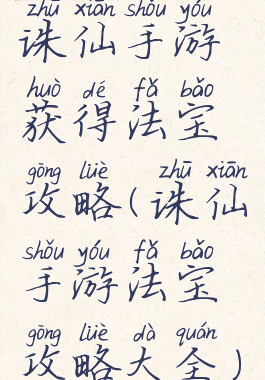 zhū xiān shǒu yóu
诛仙手游
huò dé fǎ bǎo
获得法宝
gōng lüè zhū xiān
攻略(诛仙
shǒu yóu fǎ bǎo
手游法宝
gōng lüè dà quán
攻略大全)